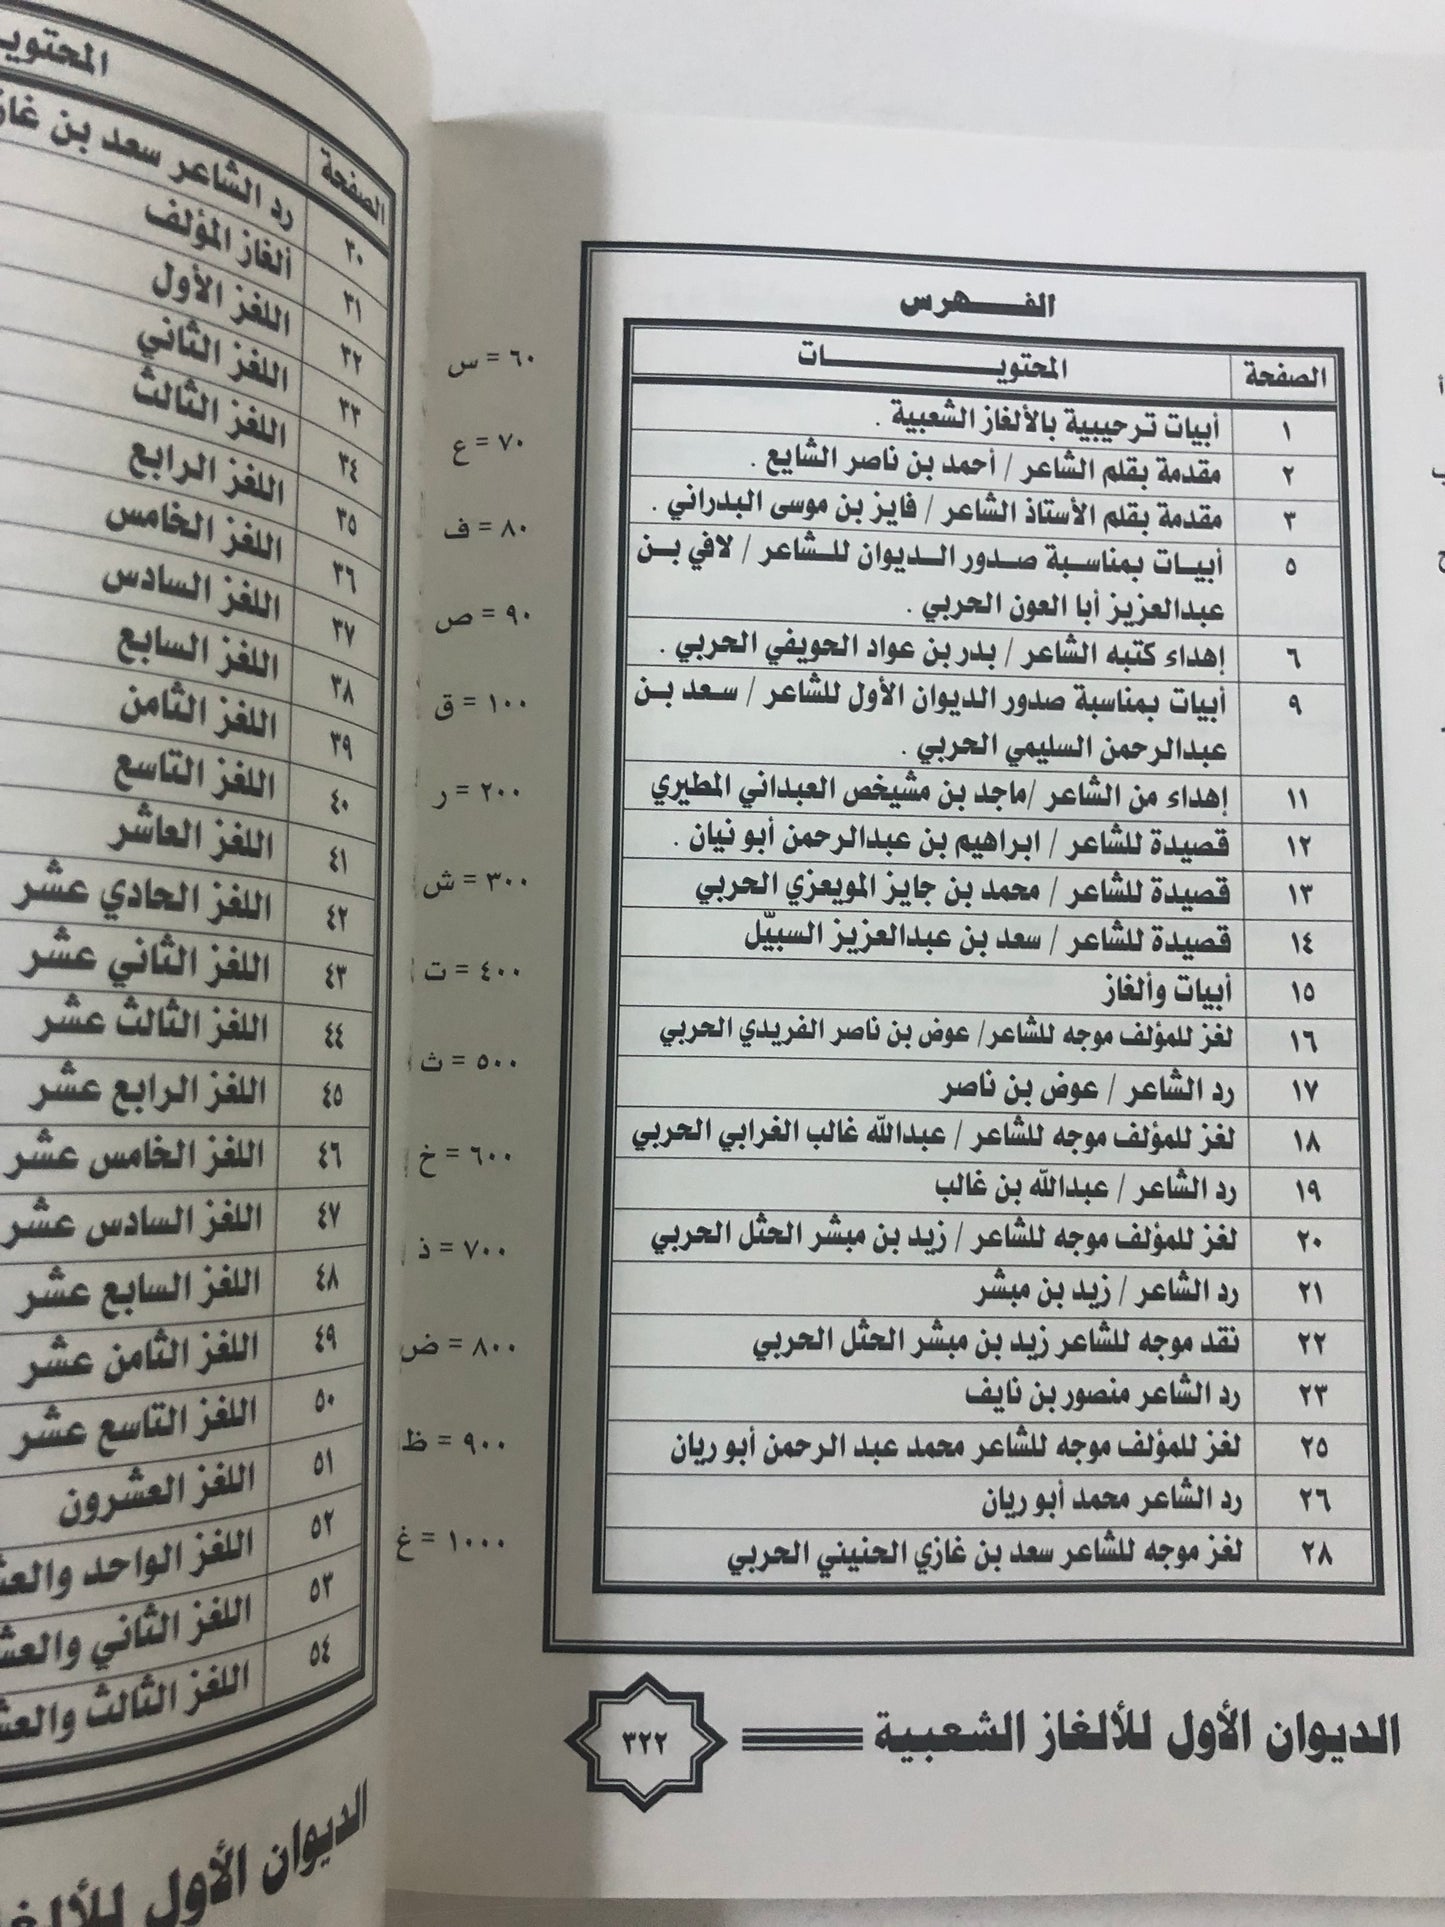 الفـــهرس
الصفحة المحتويـــــــات
١ أبيات ترحيبية بالألغاز الشعبية .
٢ مقدمة بقلم الشاعر / أحمد بن ناصر الشايع .
٣ مقدمة بقلم الأستاذ الشاعر / فايز بن موسى البدراني .
٥ أبيـات بمناسـبة صـدور الـديوان للـشاعر / لافي بـن
عبدالعزيز أبا العون الحربي .
٦ إهداء كتبه الشاعر / بدر بن عواد الحويفي الحربي .
٩ أبيات بمناسبة صدور الديوان الأول للشاعر / سـعد بـن
عبدالرحمن السليمي الحربي .
١١ إهداء من الشاعر /ماجد بن مشيخص العبداني المطيري
١٢ قصيدة للشاعر / ابراهيم بن عبدالرحمن أبو نيان .
١٣ قصيدة للشاعر / محمد بن جايز المويعزي الحربي
١٤ قصيدة للشاعر / سعد بن عبدالعزيز السبيّل
١٥ أبيات وألغاز
١٦ لغز للمؤلف موجه للشاعر/ عوض بن ناصر الفريدي الحربي
١٧ رد الشاعر / عوض بن ناصر
١٨ لغز للمؤلف موجه للشاعر / عبدالله غالب الغرابي الحربي
١٩ رد الشاعر / عبدالله بن غالب
٢٠ لغز للمؤلف موجه للشاعر / زيد بن مبشر الحثل الحربي
٢١ رد الشاعر / زيد بن مبشر
٢٢ نقد موجه للشاعر زيد بن مبشر الحثل الحربي
٢٣ رد الشاعر منصور بن نايف
٢٥ لغز للمؤلف موجه للشاعر محمد عبد الرحمن أبو ريان
٢٦ رد الشاعر محمد أبو ريان
٢٨ لغز موجه للشاعر سعد بن غازي الحنيني الحربي
الديوان الأول للألغاز الشعبية ٣٢٢
٦٠ = س
٧٠ = ع
٨٠ = ف
٩٠ = ص
١٠٠ = ق
٢٠٠ = ر
٣٠٠ = ش
٤٠٠ = ت
٥٠٠ = ث
٦٠٠ = خ
٧٠٠ = ذ
٨٠٠ = ض
٩٠٠ = ظ
١٠٠٠ = غ
الصفحة
٣٠ رد الشاعر سعد بن
٣١ ألغاز المؤلف
٣٢ اللغز الأول
٣٣ اللغز الثاني
٣٤ اللغز الثالث
٣٥ اللغز الرابع
٣٦ اللغز الخامس
٣٧ اللغز السادس
٣٨ اللغز السابع
٣٩ اللغز الثامن
٤٠ اللغز التاسع
٤١ اللغز العاشر
٤٢ اللغز الحادي عشر
٤٣ اللغز الثاني عشر
٤٤ اللغز الثالث عشر
٤٥ اللغز الرابع عشر
٤٦ اللغز الخامس عشر
٤٧ اللغز السادس عشر
٤٨ اللغز السابع عشر
٤٩ اللغز الثامن عشر
٥٠ اللغز التاسع عشر
٥١ اللغز العشرون
٥٢ اللغز الواحد
٥٣ اللغز الثاني
٥٤ اللغز الثالث
الديوان الأول